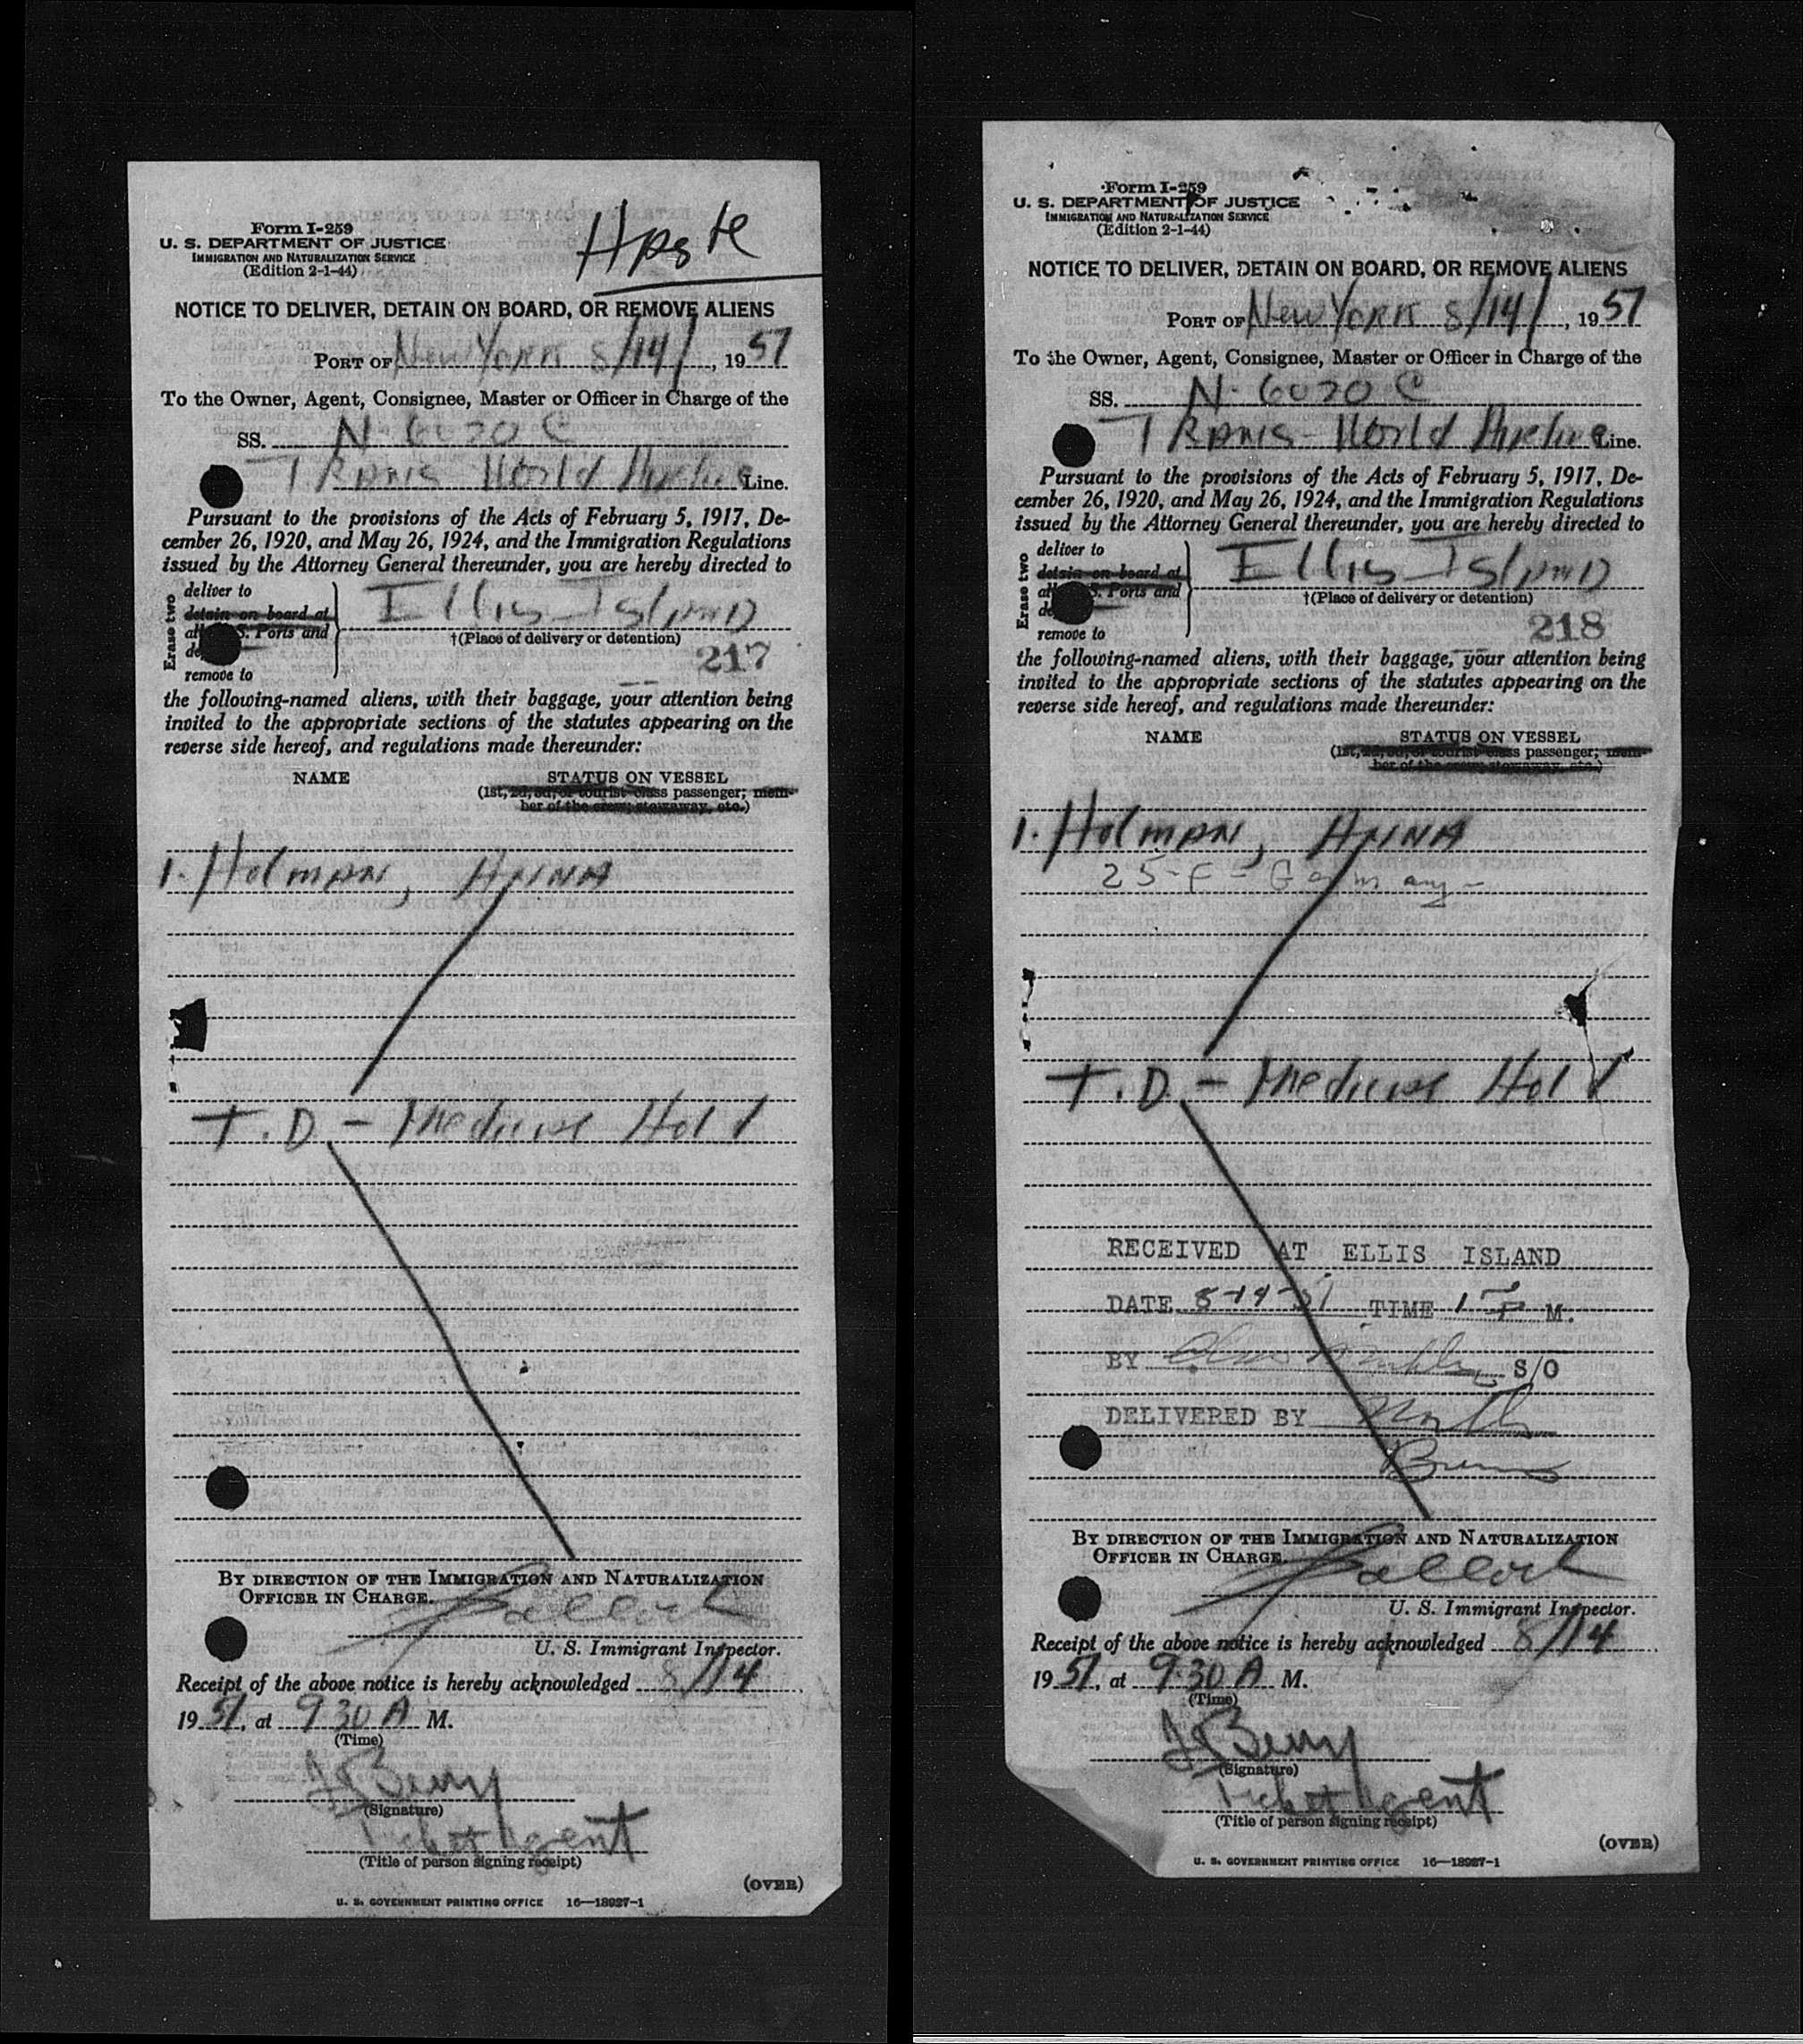 Form I-259
U. S. DEPARTMENT OF JUSTICE
IMMIGRATION AND NATURALIZATION SERVICE
(Edition 2-1-44)
NOTICE TO DELIVER, DETAIN ON BOARD, OR REMOVE ALIENS
PORT OF New York 8/14/, 1951
To the Owner, Agent, Consignee, Master or Officer in Charge of the
SS. N-6020 C
Trans World Airline Line.
Pursuant to the provisions of the Acts of February 5, 1917, De-
cember 26, 1920, and May 26, 1924, and the Immigration Regulations
issued by the Attorney General thereunder, you are hereby directed to
Erase two
deliver to
detain on board at
S. Ports and
remove to
Ellis Island
†(Place of delivery or detention)
217
the following-named aliens, with their baggage, your attention being
invited to the appropriate sections of the statutes appearing on the
reverse side hereof, and regulations made thereunder:
NAME STATUS ON VESSEL
(1st, 2d, 3d, or tourist class passenger; mem-
ber of the crew; stowaway, etc.)
1. Holman, Anna
T.D. - Medical Hold
BY DIRECTION OF THE IMMIGRATION AND NATURALIZATION
OFFICER IN CHARGE.
U. S. Immigrant Inspector.
Receipt of the above notice is hereby acknowledged 8/14
1951, at 9 30 A M.
(Time)
J Berry
(Signature)
Ticket Agent
(Title of person signing receipt)
(OVER)
U. S. GOVERNMENT PRINTING OFFICE 16—18927-1
Form I-259
U. S. DEPARTMENT OF JUSTICE
IMMIGRATION AND NATURALIZATION SERVICE
(Edition 2-1-44)
NOTICE TO DELIVER, DETAIN ON BOARD, OR REMOVE ALIENS
PORT OF New York 8/14/, 1951
To the Owner, Agent, Consignee, Master or Officer in Charge of the
SS. N-6020 C
Trans-World Airline Line.
Pursuant to the provisions of the Acts of February 5, 1917, De-
cember 26, 1920, and May 26, 1924, and the Immigration Regulations
issued by the Attorney General thereunder, you are hereby directed to
Erase two
deliver to
detain on board at
S. Ports and
remove to
Ellis Island
†(Place of delivery or detention)
218
the following-named aliens, with their baggage, your attention being
invited to the appropriate sections of the statutes appearing on the
reverse side hereof, and regulations made thereunder:
NAME STATUS ON VESSEL
(1st, 2d, 3d, or tourist class passenger; mem-
ber of the crew; stowaway, etc.)
1. Holman, Anna
25-F-Germany-
T.D. - Medical Hold
RECEIVED AT ELLIS ISLAND
DATE 8-14-51 TIME 1 P M.
BY S/O
DELIVERED BY
BY DIRECTION OF THE IMMIGRATION AND NATURALIZATION
OFFICER IN CHARGE.
U. S. Immigrant Inspector.
Receipt of the above notice is hereby acknowledged 8/14
1951, at 9.30 A M.
(Time)
J Berry
(Signature)
Ticket Agent
(Title of person signing receipt)
(OVER)
U. S. GOVERNMENT PRINTING OFFICE 16—18927-1